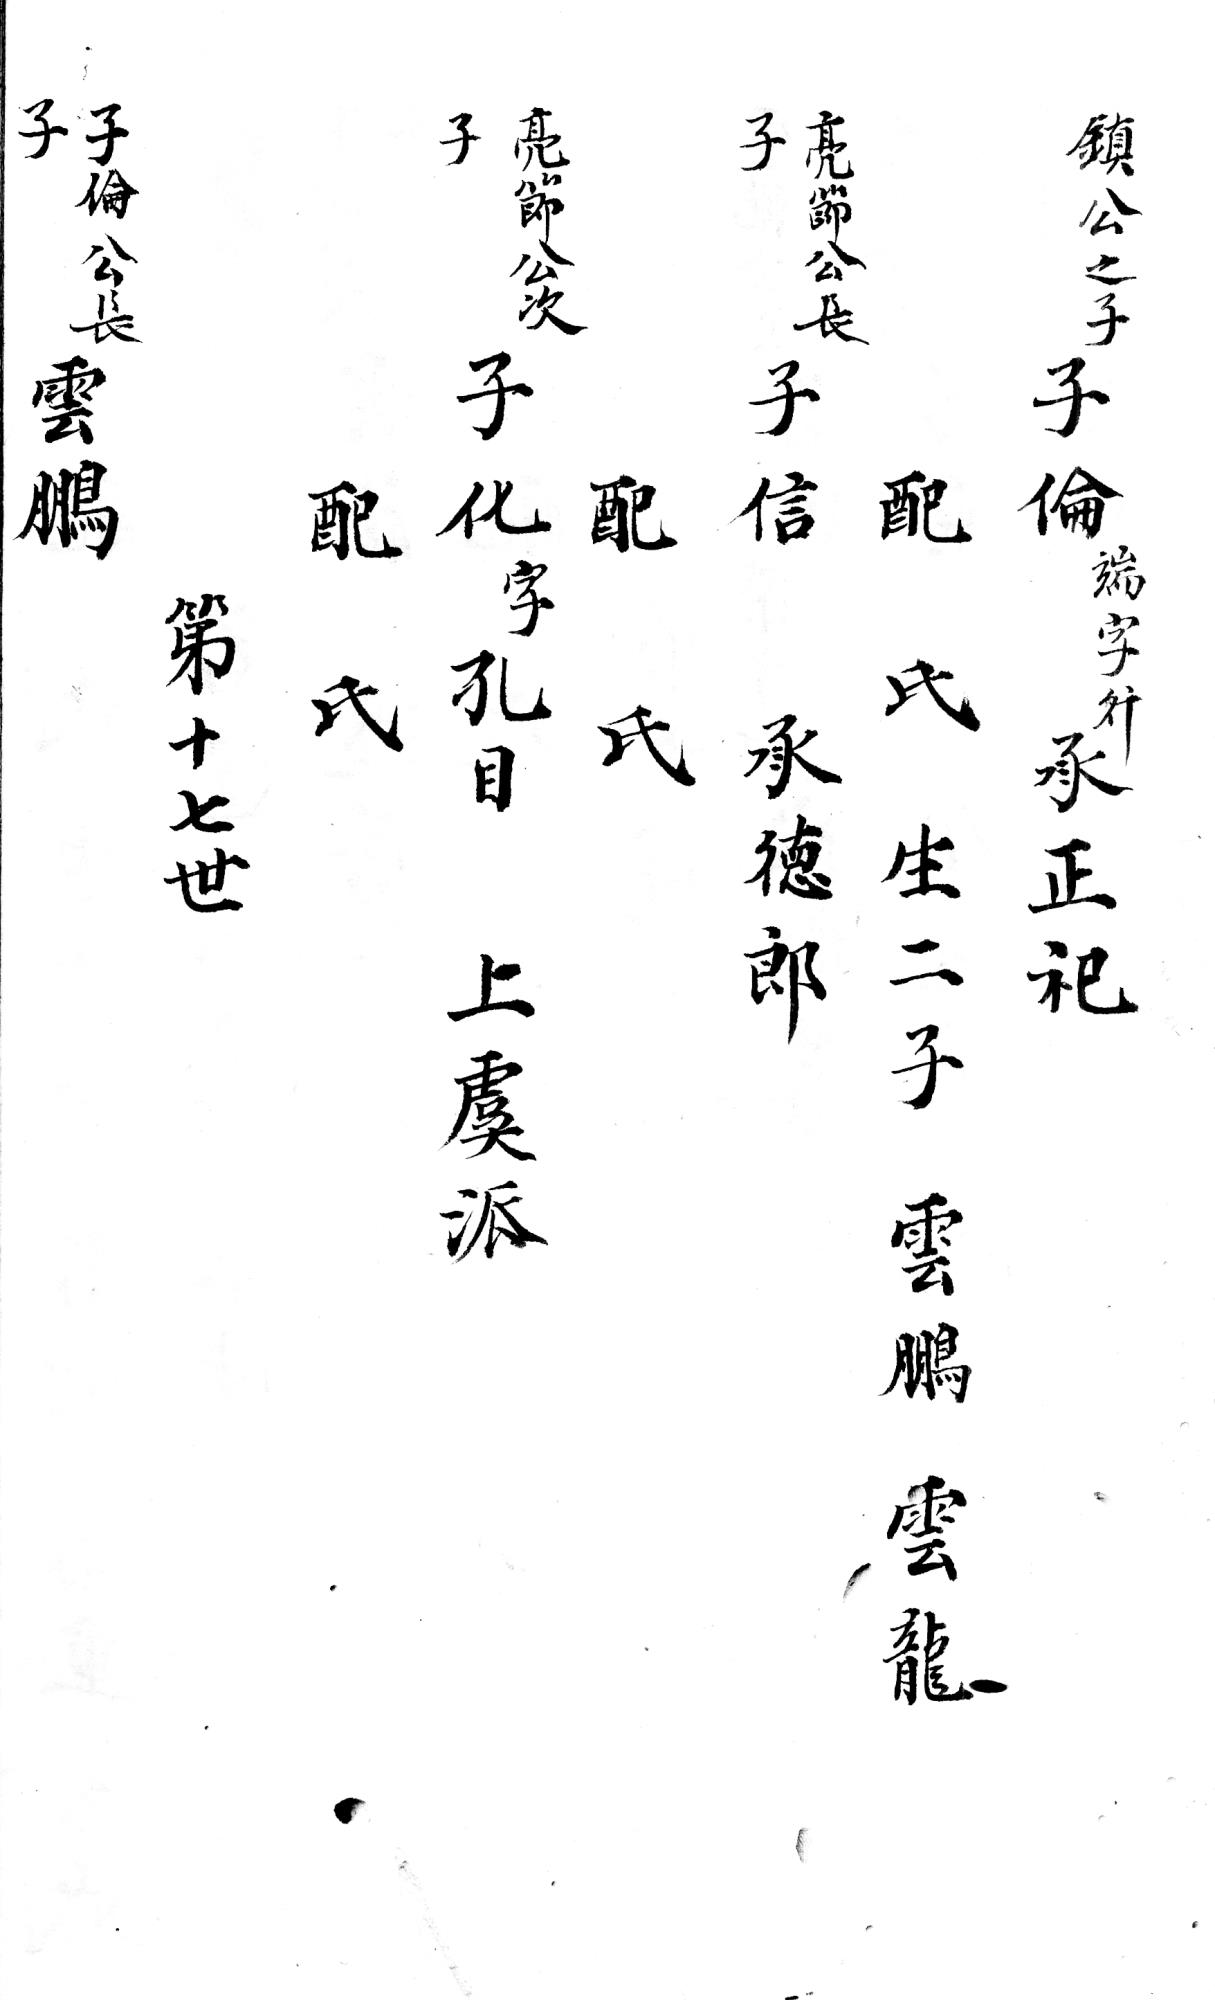 鎮公之子 子倫 端字行 承正祀
配 氏 生二子 雲鵬 雲龍
亮節公長子 子信 承德郎
配 氏
亮節公次子 子化 字孔目 上虞派
配 氏
第十七世
子倫公長子 雲鵬